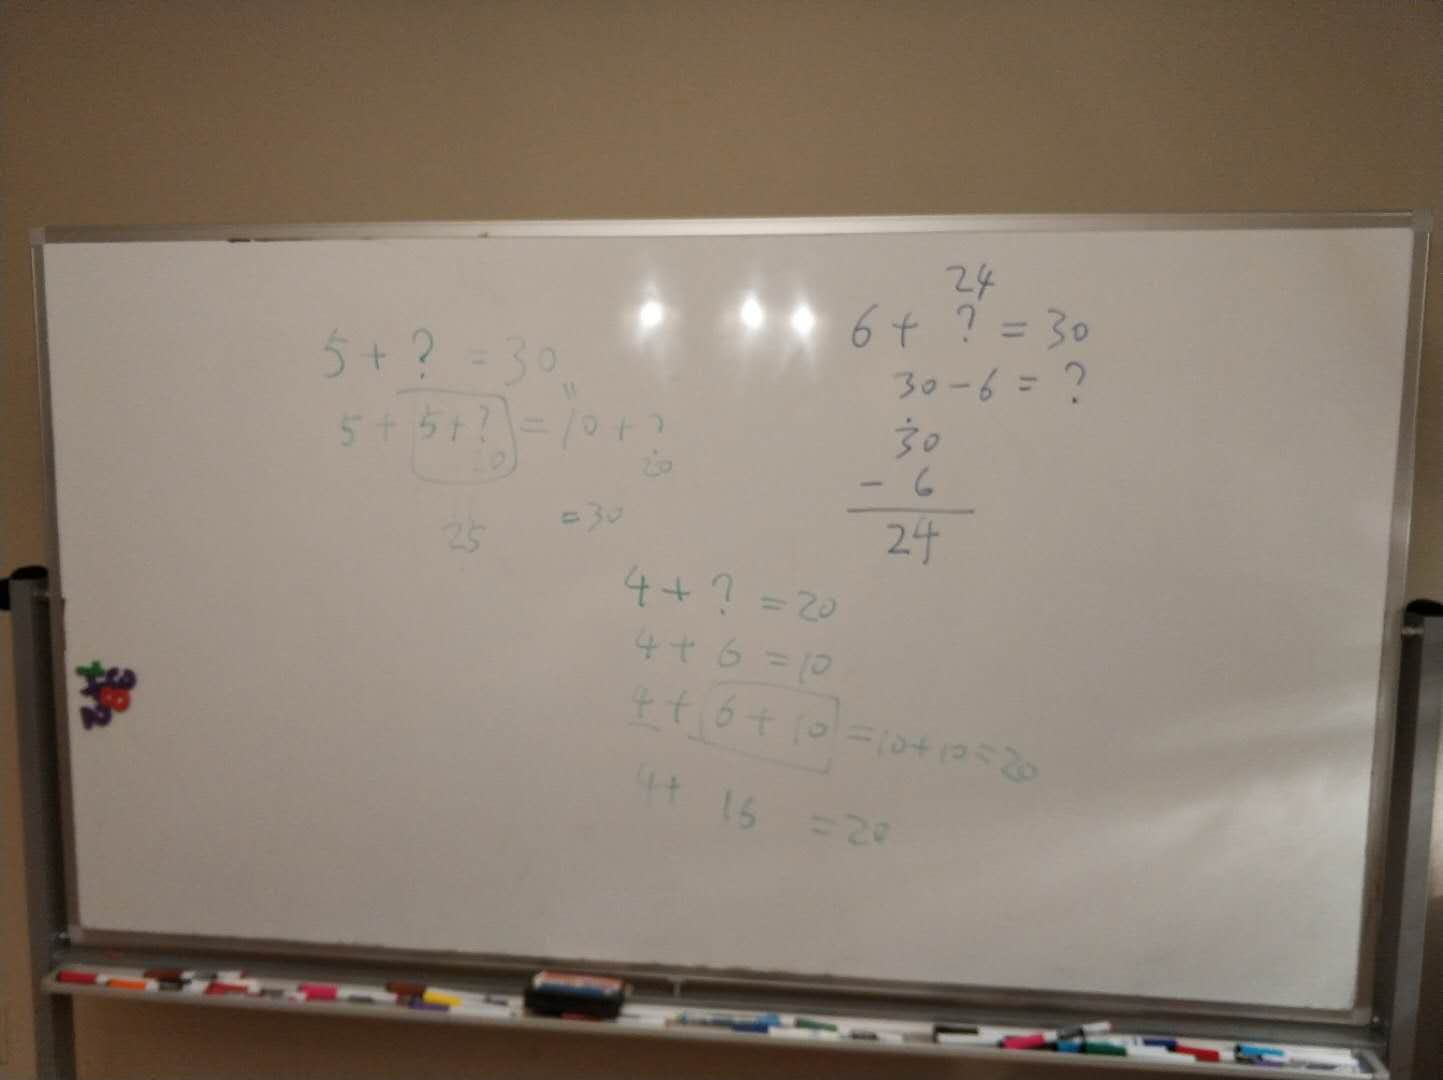 5 + ? = 30
"
5 + 5 + ? = 10 + ?
20 20
25 = 30
24
6 + ? = 30
30 - 6 = ?
30
- 6
24
4 + ? = 20
4 + 6 = 10
4 + 6 + 10 = 10 + 10 = 20
4 + 16 = 20
3
+ 8
2